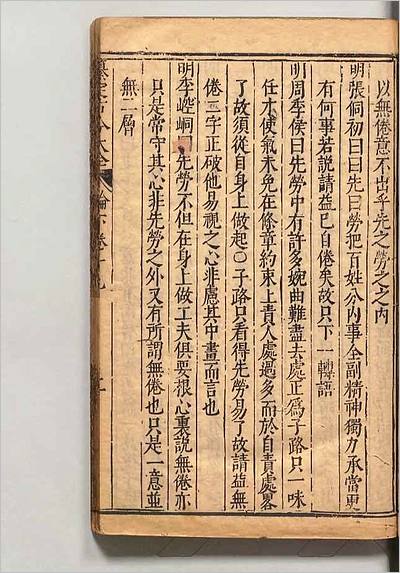 以無倦意不出乎先之勞之之內
明張侗初曰曰先曰勞把百姓分內事全副精神獨力承當更
有何事若說請益已自倦矣故只下一轉語
明周季侯曰先勞中有許多婉曲難盡去處正為子路只一味
任才使氣未免在條章約束上責人處過多而於自責處畧
了故須從自身上做起〇子路只看得先勞易了故請益無
倦二字正破他易視之心非慮其中畫而言也
明李崆峒曰先勞不但在身上做工夫俱要根心裏說無倦亦
只是常守其心非先勞之外又有所謂無倦也只是一意並
無二層
論下卷十九